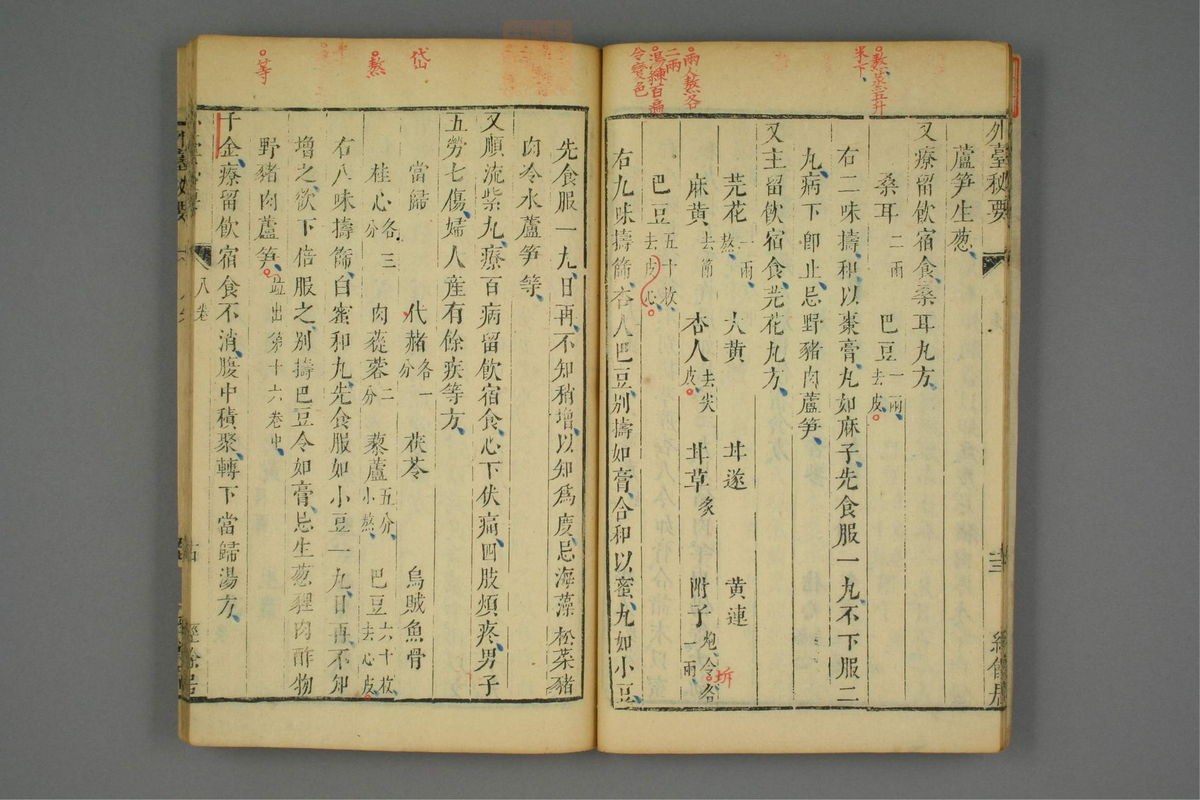 外臺秘要
蘆笋生葱
又療留飲宿食桑耳丸方
桑耳二兩 巴豆一兩去皮
右二味擣和以棗膏丸如麻子先食服一丸不下服二
丸病下卽止忌野豬肉蘆笋
又主留飲宿食芫花丸方
芫花一兩熬 大黄 甘遂 黄連
麻黄去節 杏人去尖皮 甘草炙 附子炮令各一兩
巴豆五十枚去皮心
右九味擣篩杏人巴豆别擣如膏合和以蜜丸如小豆
先食服一丸日再不知稍增以知爲度忌海藻菘菜豬
肉冷水蘆笋等
又順流紫丸療百病留飲宿食心下伏痛四肢煩疼男子
五勞七傷婦人産有餘疾等方
當歸 代赭各一分 茯苓 烏賊魚骨
桂心各三分 肉蓯蓉二分 藜蘆五分小熬 巴豆六十枚去心皮
右八味擣篩白蜜和丸先食服如小豆一丸日再不知
增之欲下倍服之别擣巴豆令如膏忌生葱貍肉酢物
野豬肉蘆笋並出第十六卷中
千金療留飲宿食不消腹中積聚轉下當歸湯方
八卷
熬
兩人熬各
二兩
令變色
坼
岱
熬
等